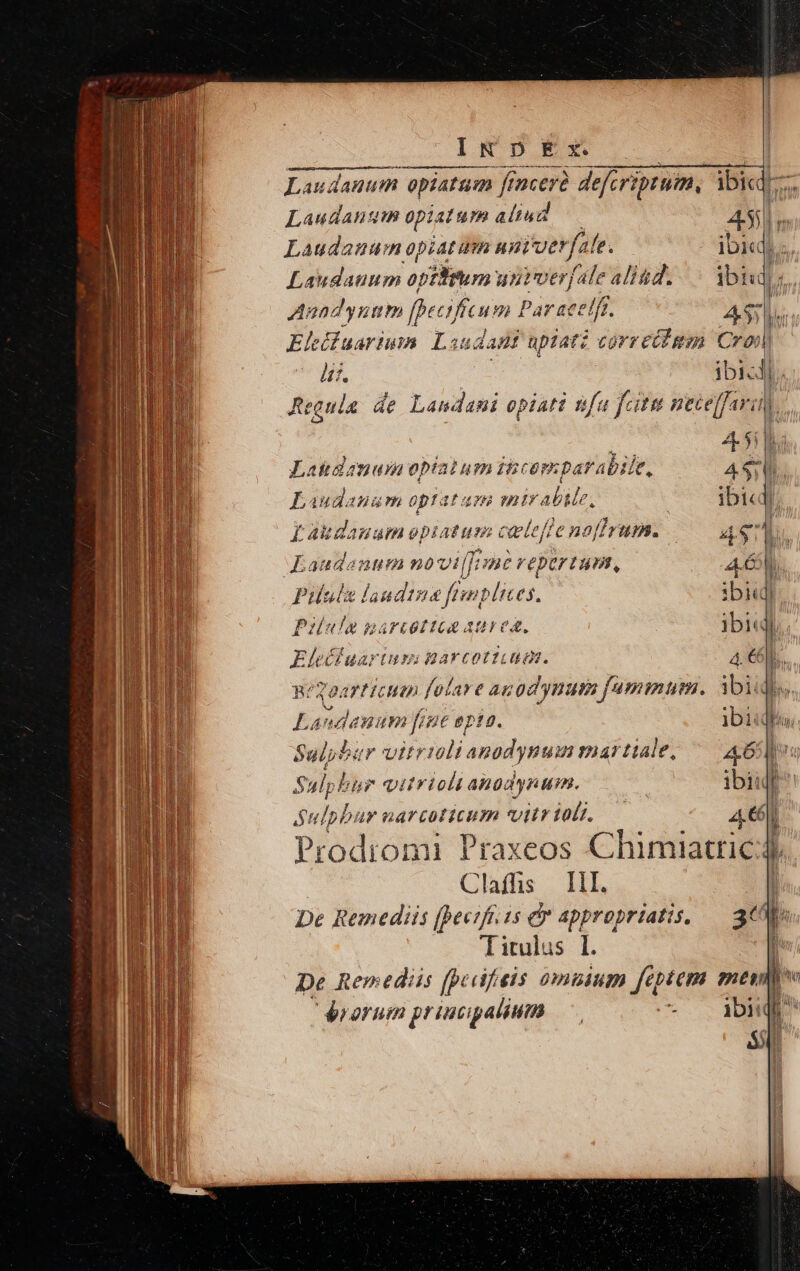 INDEX.
Laudanum opiatum ſincerè deſcriptum, ibid
Laudanum opiatum aliud 45
Laudanum opiatum univerſale. ibid
Laudanum opiatum univerſale aliud. ibid
Anodynum ſpecificum Paracelſi. 45
Electuarium Laudani opiati correctum Crol
lii. ibid
Regula de Laudani opiati uſu ſcitu neceſſaria
45
Laudanum opiatum incomparabile, 45
Laudanum opiatum mirabile, ibid
Laudanum opiatum cœleſte noſtrum. 45
Laudanum noviſſimè repertum, 46
Pilulæ laudinæ ſimplices. ibid
Pilulæ narcoticæ aureæ. ibid
Electuarium narcoticum. 46
Bezoarticum ſolare anodynum ſummum. ibid
Laudanum ſine opio. ibid
Sulphur vitrioli anodynum martiale, 46
Sulphur vitrioli anodynum. ibid
Sulphur narcoticum vitrioli. 46
Prodromi Praxeos Chimiatricæ
Claſſis III.
De Remediis ſpecificis & appropriatis. 3
Titulus I.
De Remediis ſpecificis omnium ſeptem mem
brorum principalium - ibid